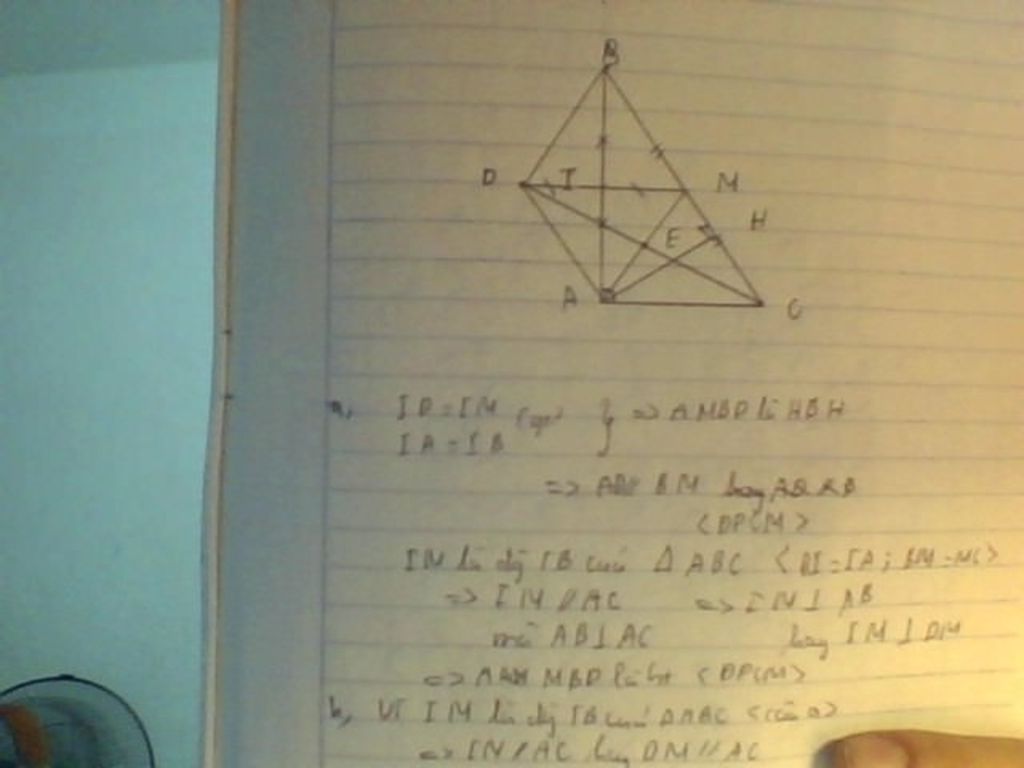 B
D I M
H
E
A C
a, ID = IM
IA = IB } => AMBD là HBH
=> BM hay
<ĐPCM>
IM là đg TB của Δ ABC <BI = IA; BM = MC>
=> IM // AC => IM ⊥ AB
mà AB ⊥ AC hay IM ⊥ DM
=> MBD là <ĐPCM>
b, Vì IM là đg TB của ΔABC <câu a>
=> IM // AC hay DM // AC